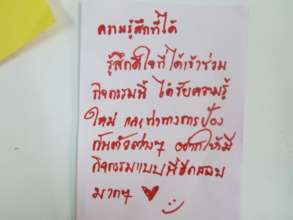 ความรู้สึกที่ได้
รู้สึกดีใจที่ได้เข้าร่วม
กิจกรรมนี้ ได้รับความรู้
ใหม่ และท่าทางการป้อง
กันตัวต่างๆ อยากให้มี
กิจกรรมแบบนี้อีกตลอบ
มากๆ